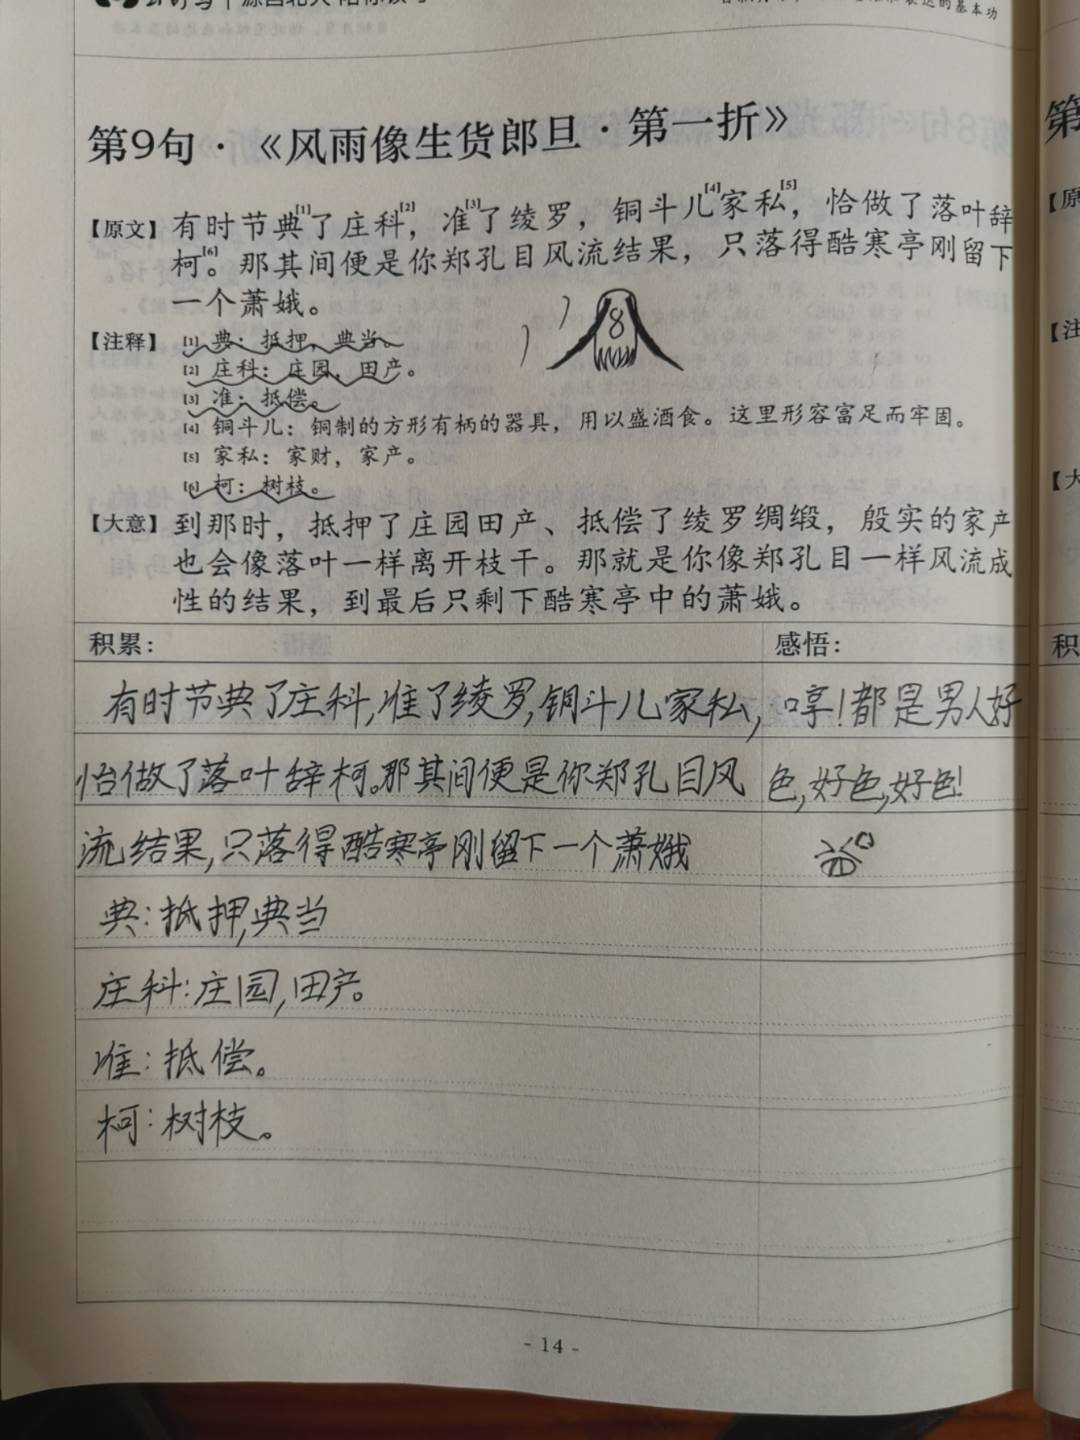 表达的基本功
第9句·《风雨像生货郎旦·第一折》
【原文】有时节典[1]了庄科[2]，准[3]了绫罗，铜斗儿[4]家私[5]，恰做了落叶辞
柯[6]。那其间便是你郑孔目风流结果，只落得酷寒亭刚留下
一个萧娥。
8
【注释】[1] 典：抵押，典当。
[2] 庄科：庄园，田产。
[3] 准：抵偿。
[4] 铜斗儿：铜制的方形有柄的器具，用以盛酒食。这里形容富足而牢固。
[5] 家私：家财，家产。
[6] 柯：树枝。
【大意】到那时，抵押了庄园田产、抵偿了绫罗绸缎，殷实的家产
也会像落叶一样离开枝干。那就是你像郑孔目一样风流成
性的结果，到最后只剩下酷寒亭中的萧娥。
积累：
有时节典了庄科,准了绫罗,铜斗儿家私,
恰做了落叶辞柯。那其间便是你郑孔目风
流结果,只落得酷寒亭刚留下一个萧娥
典:抵押,典当
庄科:庄园,田产。
准:抵偿。
柯:树枝。
感悟：
哼!都是男人好
色,好色,好色!
- 14 -
第
【原
【注
【大
积